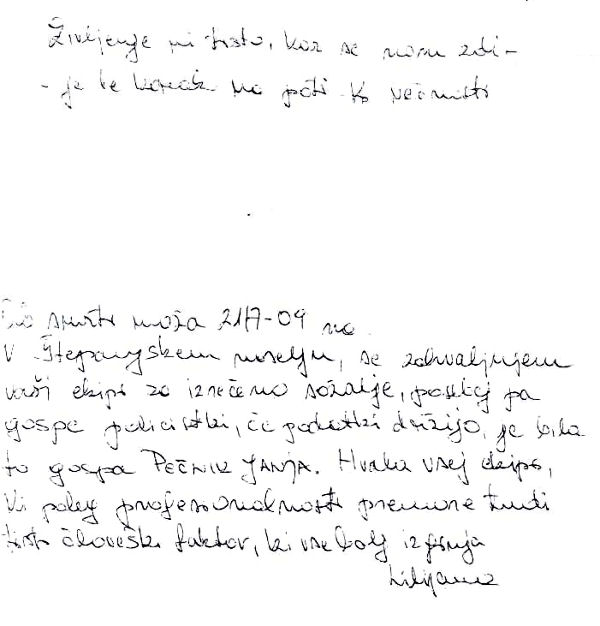 Življenje ni tisto, kar se nam zdi -
- je le korak na poti k večnosti
Ob smrti moža 21/7-09 na
v Štepanjskem naselju, se zahvaljujem
vaši ekipi za izrečeno sožalje, posebej pa
gospe policistki, če podatki držijo, je bila
to gospa PEČNIK JANJA. Hvala vsej ekipi,
ki poleg profesionalnosti premore tudi
tisti človeški faktor, ki vse bolj izginja
Lilijana